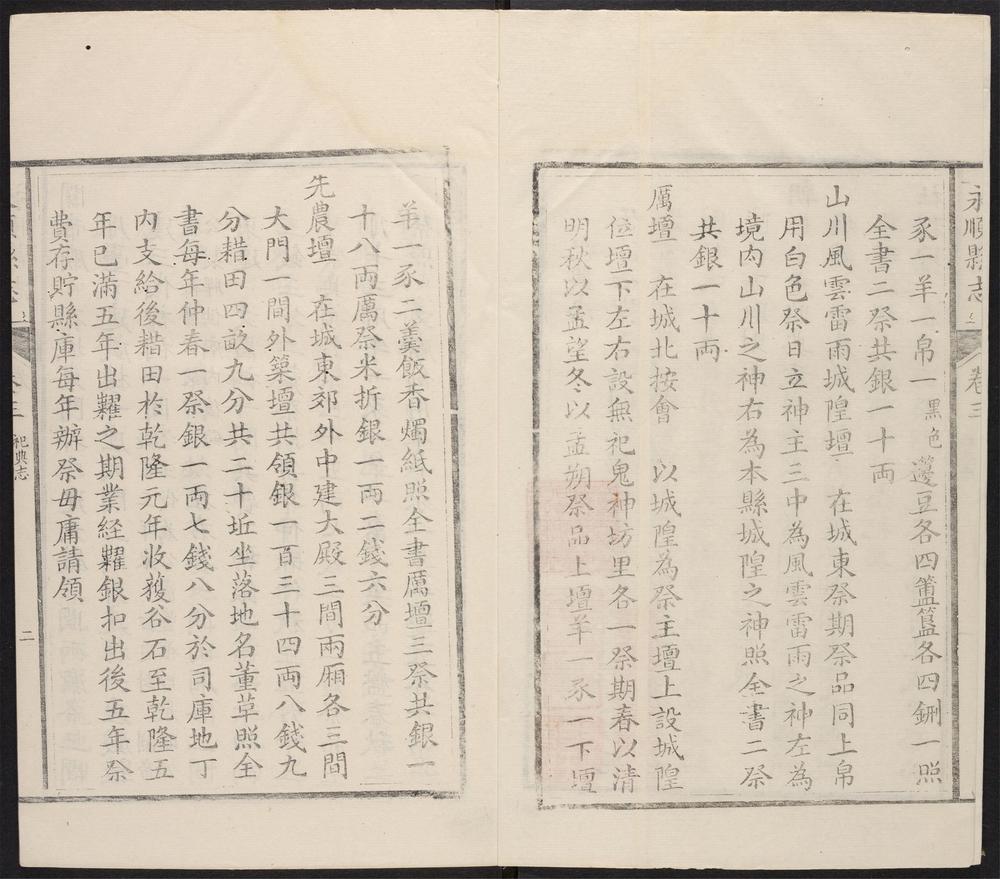 永順縣志 卷三
豕一羊一帛一黑色籩豆各四簠簋各四鉶一照
全書二祭共銀一十両
山川風雲雷雨城隍壇 在城東祭期祭品同上帛
用白色祭日立神主三中為風雲雷雨之神左為
境内山川之神右為本縣城隍之神照全書二祭
共銀一十両
厲壇 在城北按會 以城隍為祭主壇上設城隍
位壇下左右設無祀鬼神坊里各一祭期春以清
明秋以孟望冬以孟朔祭品上壇羊一豕一下壇
羊一豕二羹飯香燭紙照全書厲壇三祭共銀一
十八両厲祭米折銀一両二錢六分
先農壇 在城東郊外中建大殿三間兩廂各三間
大門一間外築壇共領銀一百三十四両八錢九
分耤田四畝九分共二十坵坐落地名董草照全
書每年仲春一祭銀一両七錢八分於司庫地丁
内支給後耤田於乾隆元年收穫谷石至乾隆五
年已滿五年出糶之期業経糶銀扣出後五年祭
費存貯縣庫每年辦祭毋庸請領
祀典志 二